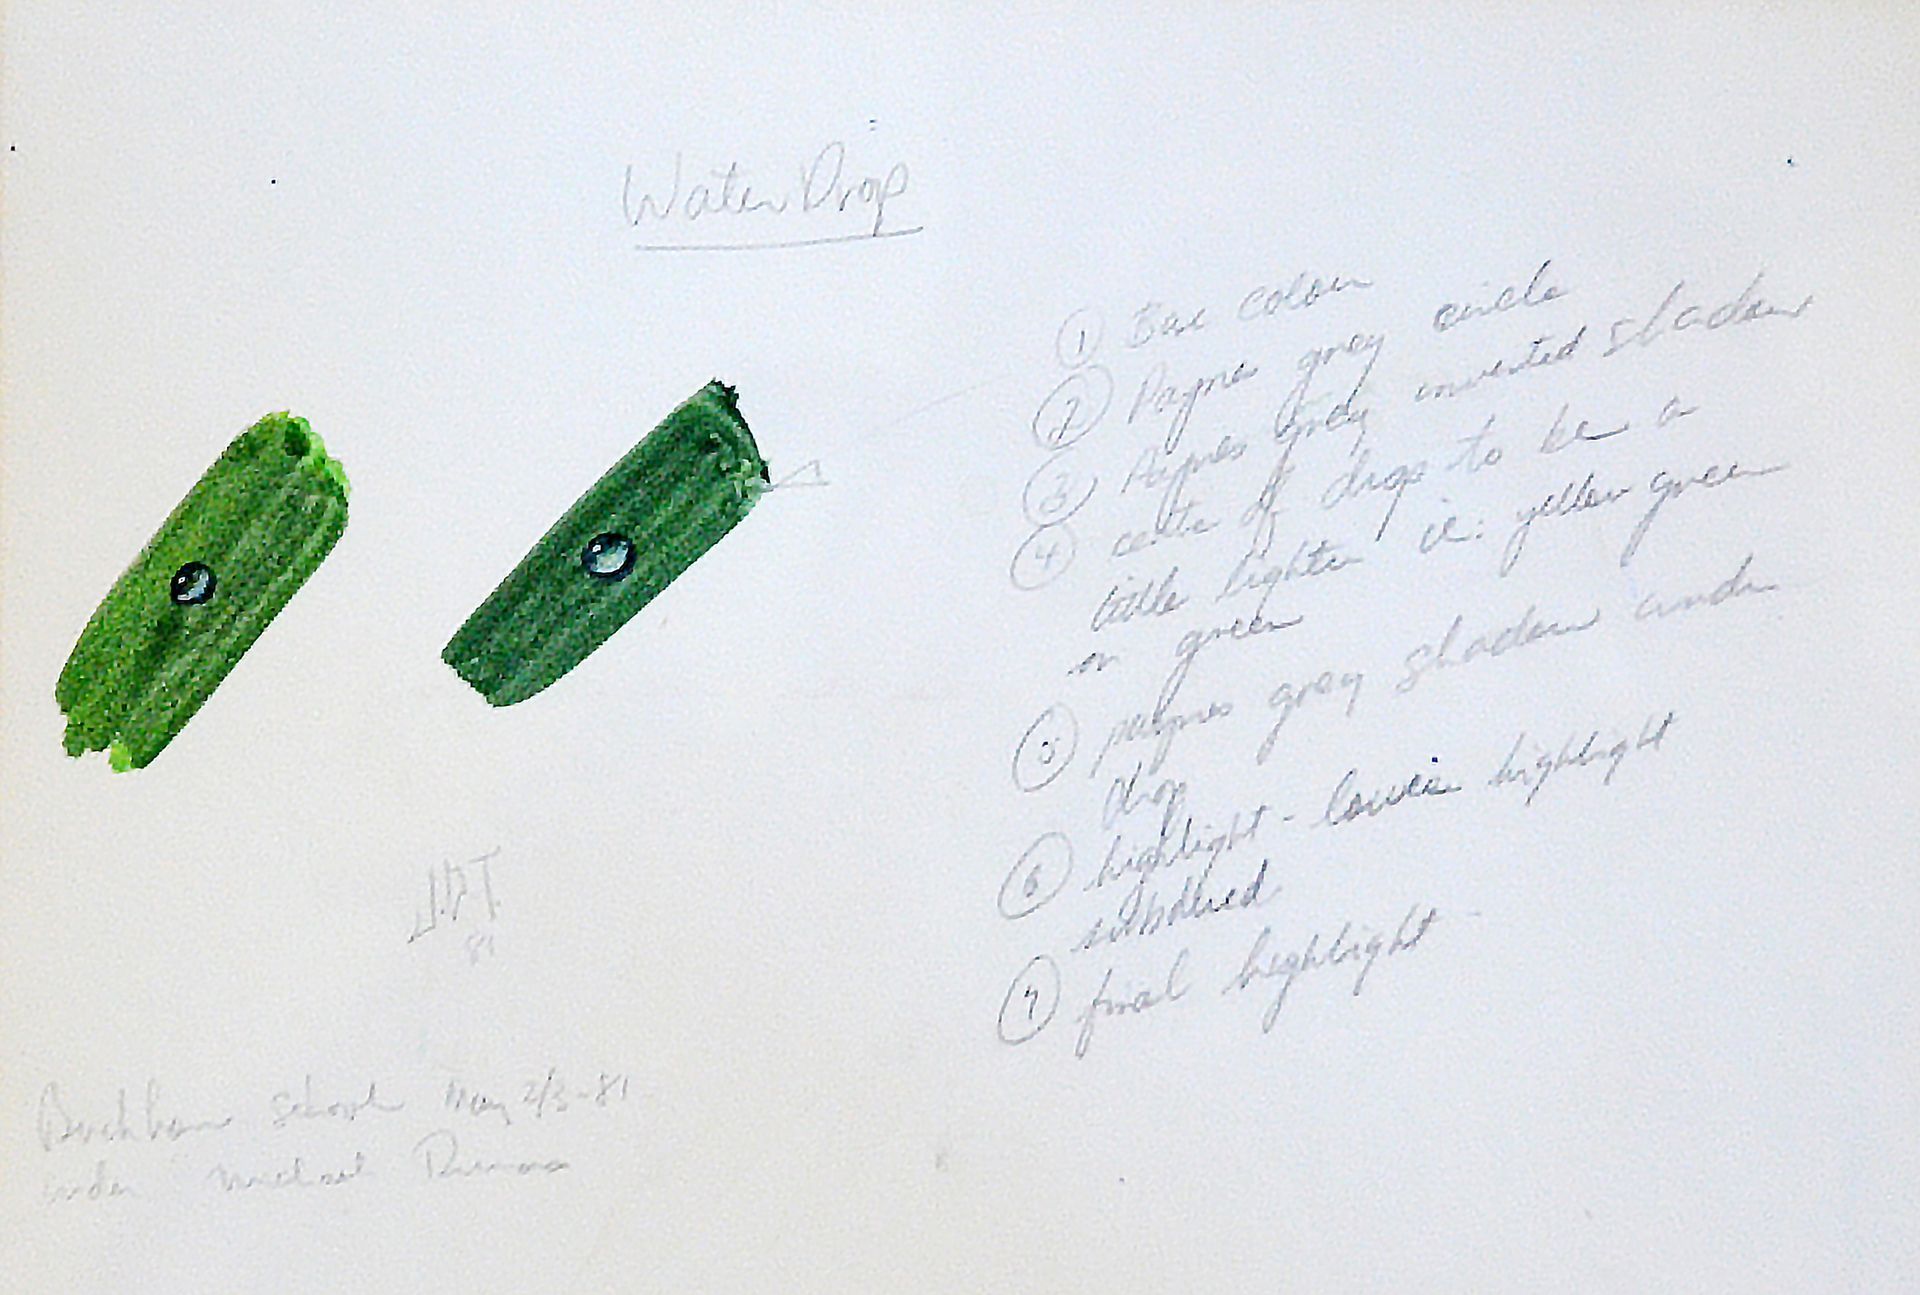 Water Drop
① Base colour
② Paynes grey circle
③ Paynes grey inverted shadow
④ centre of drops to be a
little lighter ie: yellow green
on green
⑤ paynes grey shadow under
drop
⑥ highlight - lower highlight
subdued
⑦ final highlight -
J.D.T.
81
School May 2/3-81
under Michael